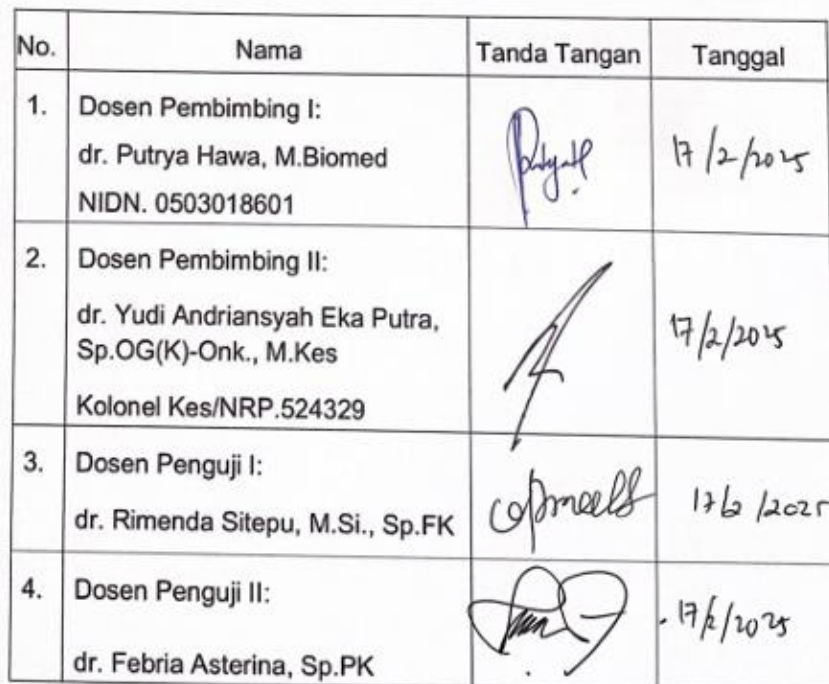 No. Nama Tanda Tangan Tanggal
1. Dosen Pembimbing I:
dr. Putrya Hawa, M.Biomed
NIDN. 0503018601
17/2/2025
2. Dosen Pembimbing II:
dr. Yudi Andriansyah Eka Putra,
Sp.OG(K)-Onk., M.Kes
Kolonel Kes/NRP.524329
17/2/2025
3. Dosen Penguji I:
dr. Rimenda Sitepu, M.Si., Sp.FK
17/2/2025
4. Dosen Penguji II:
dr. Febria Asterina, Sp.PK
17/2/2025